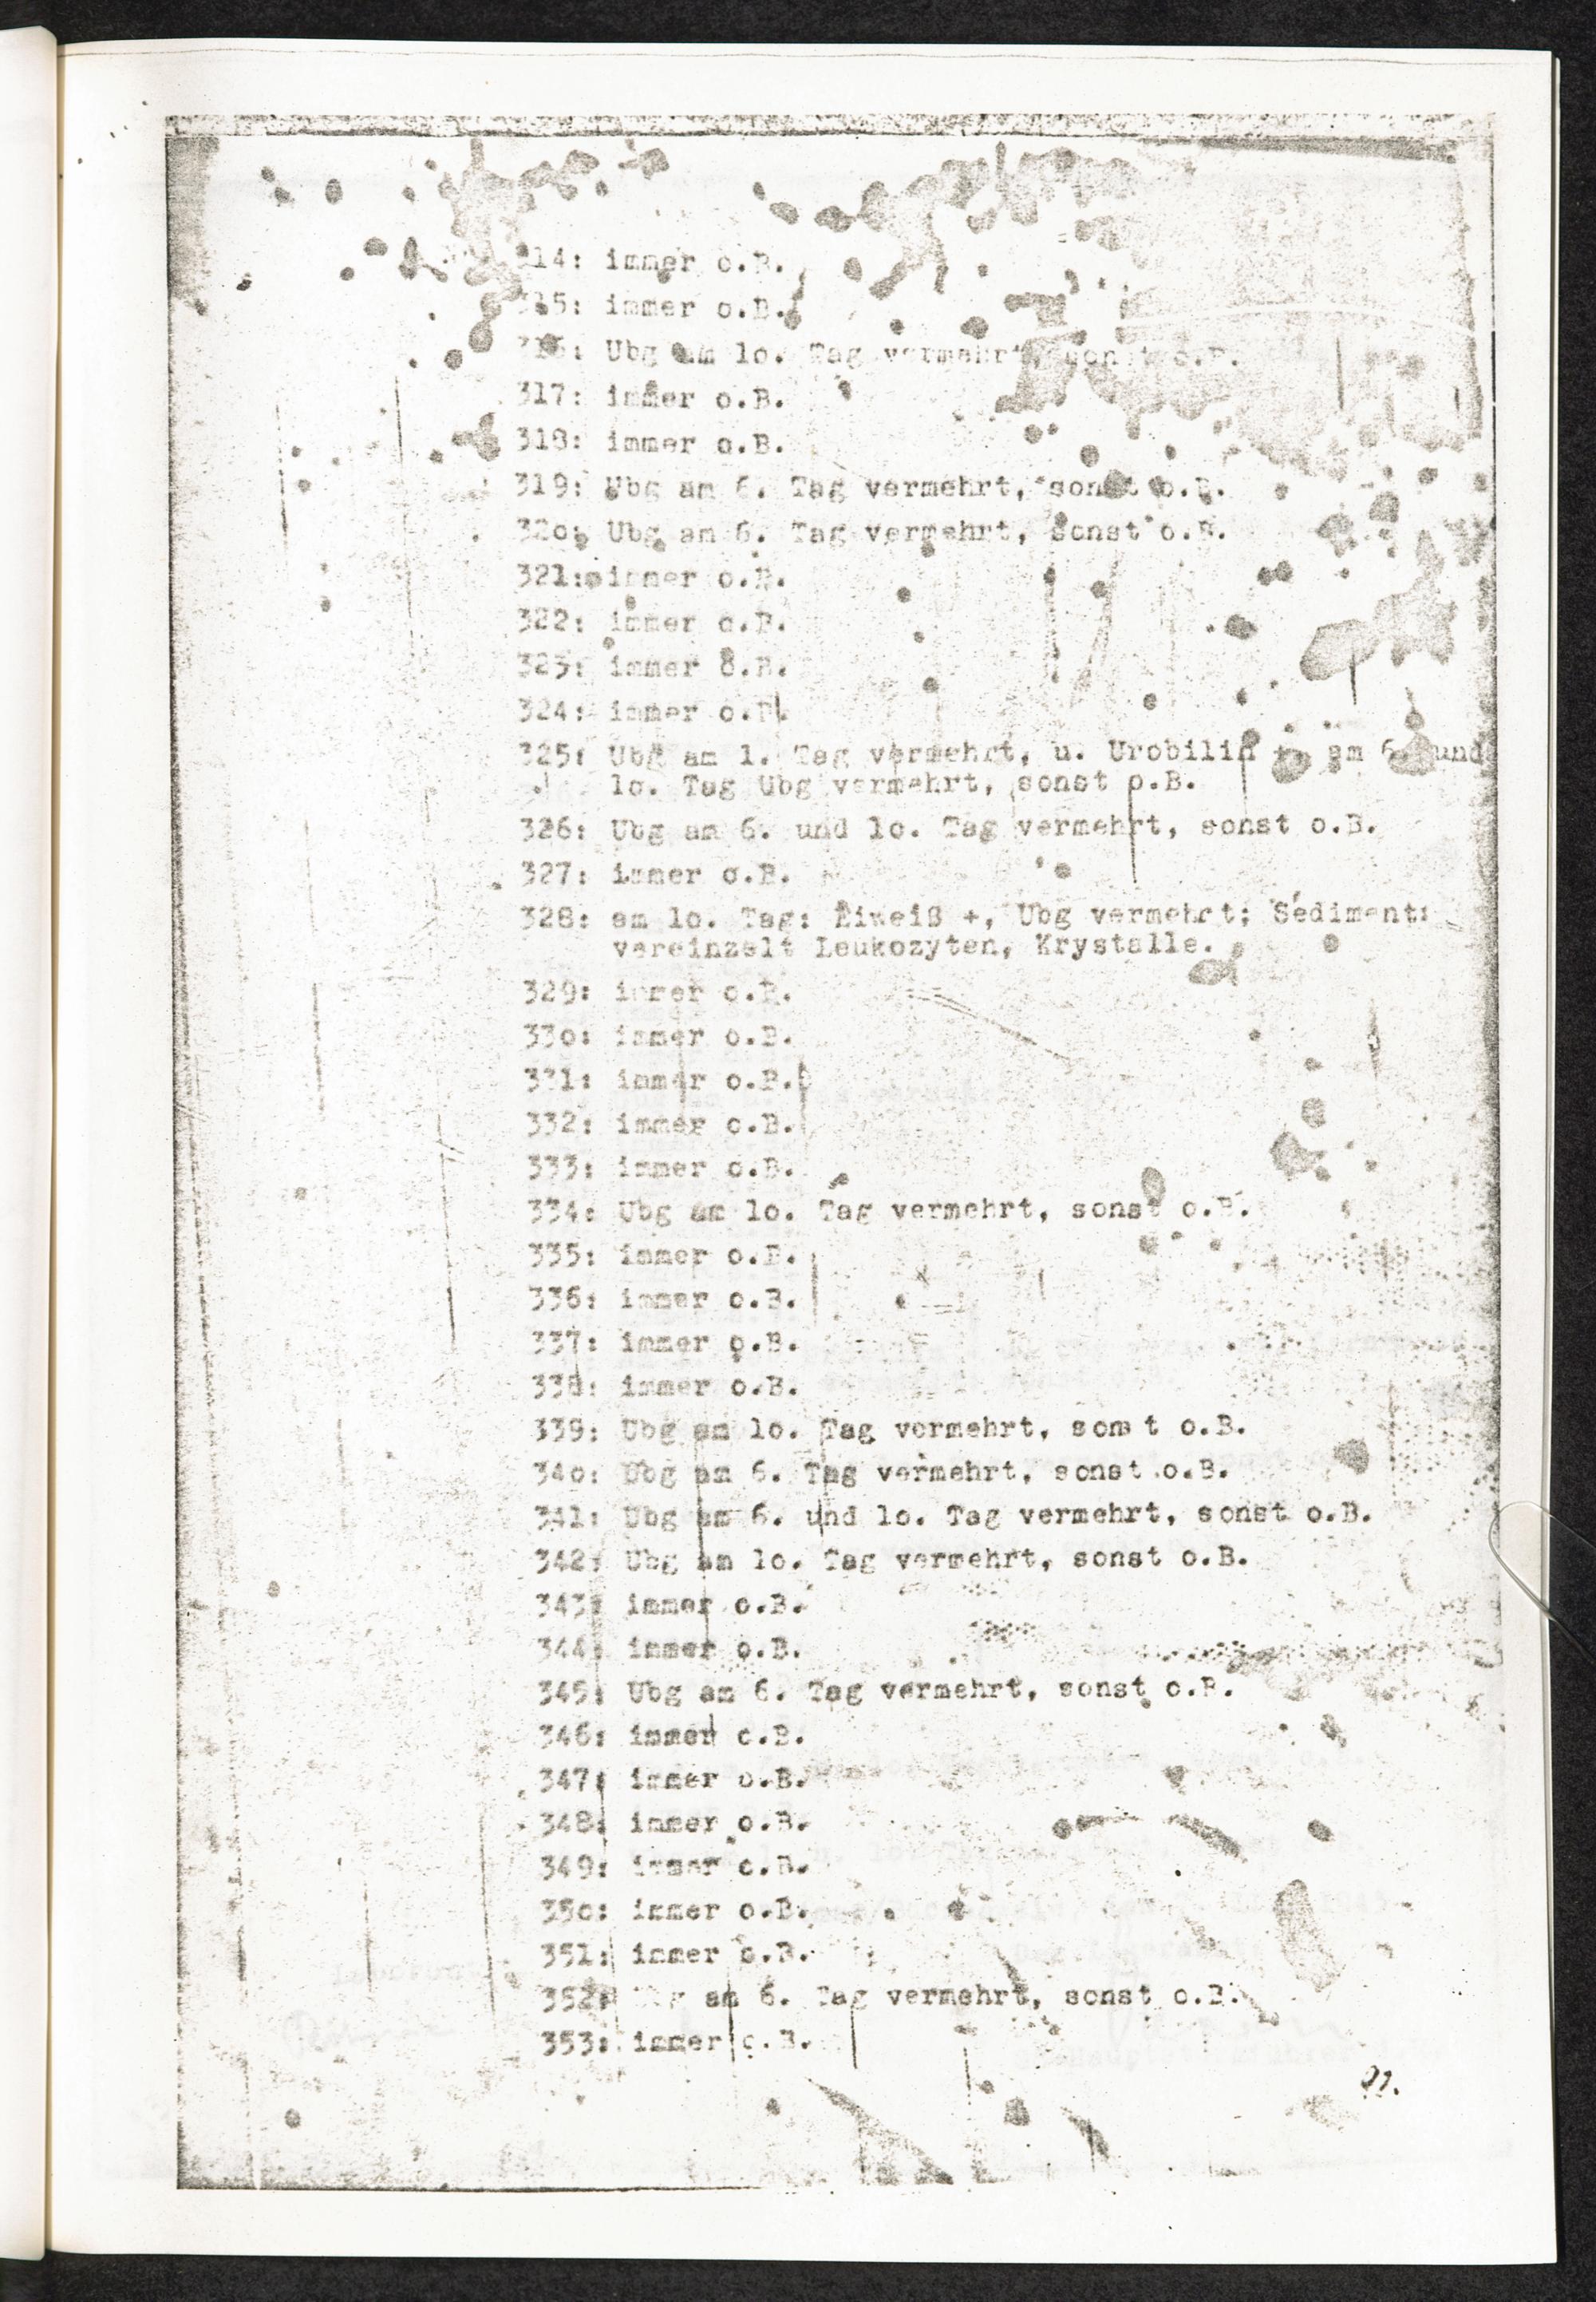 314: immer o.B.
315: immer o.B.
316: Ubg am lo. Tag vermehrt, sonst o.B.
317: immer o.B.
318: immer o.B.
319: Ubg am 6. Tag vermehrt, sonst o.B.
32o: Ubg am 6. Tag vermehrt, sonst o.B.
321: immer o.B.
322: immer o.B.
323: immer o.B.
324: immer o.B.
325: Ubg am 1. Tag vermehrt, u. Urobilin +, am 6. und
lo. Tag Ubg vermehrt, sonst o.B.
326: Ubg am 6. und lo. Tag vermehrt, sonst o.B.
327: immer o.B.
328: am lo. Tag: Eiweiß +, Ubg vermehrt; Sediment:
vereinzelt Leukozyten, Krystalle.
329: immer o.B.
33o: immer o.B.
331: immer o.B.
332: immer o.B.
333: immer o.B.
334: Ubg am lo. Tag vermehrt, sonst o.B.
335: immer o.B.
336: immer o.B.
337: immer o.B.
338: immer o.B.
339: Ubg am lo. Tag vermehrt, sonst o.B.
34o: Ubg am 6. Tag vermehrt, sonst o.B.
341: Ubg am 6. und lo. Tag vermehrt, sonst o.B.
342: Ubg am lo. Tag vermehrt, sonst o.B.
343: immer o.B.
344: immer o.B.
345: Ubg am 6. Tag vermehrt, sonst o.B.
346: immer o.B.
347: immer o.B.
348: immer o.B.
349: immer o.B.
35o: immer o.B.
351: immer o.B.
352: Ubg am 6. Tag vermehrt, sonst o.B.
353: immer o.B.